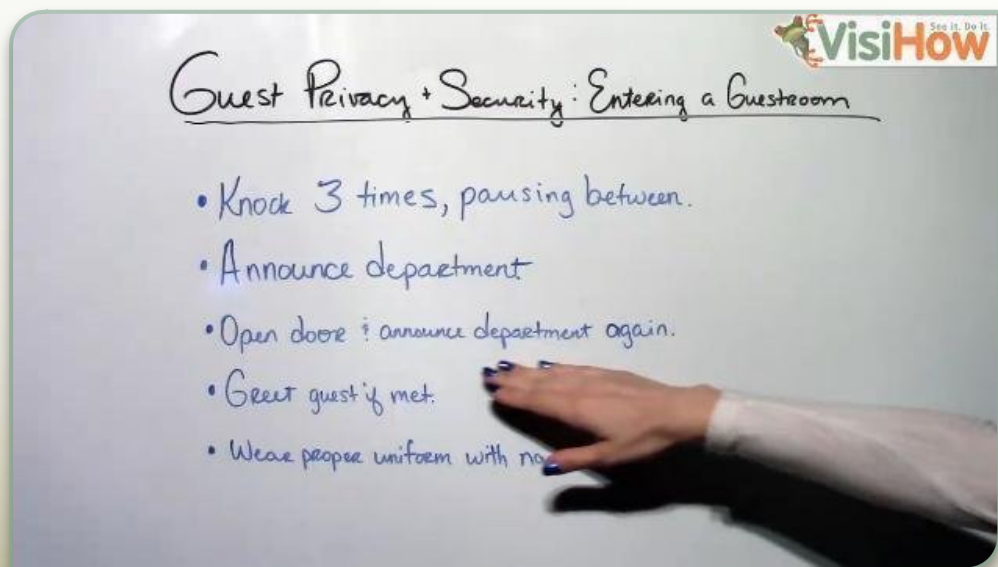 VisiHow
See it. Do it.
Guest Privacy + Security: Entering a Guestroom
• Knock 3 times, pausing between.
• Announce department
• Open door & announce department again.
• Greet guest if met.
• Wear proper uniform with